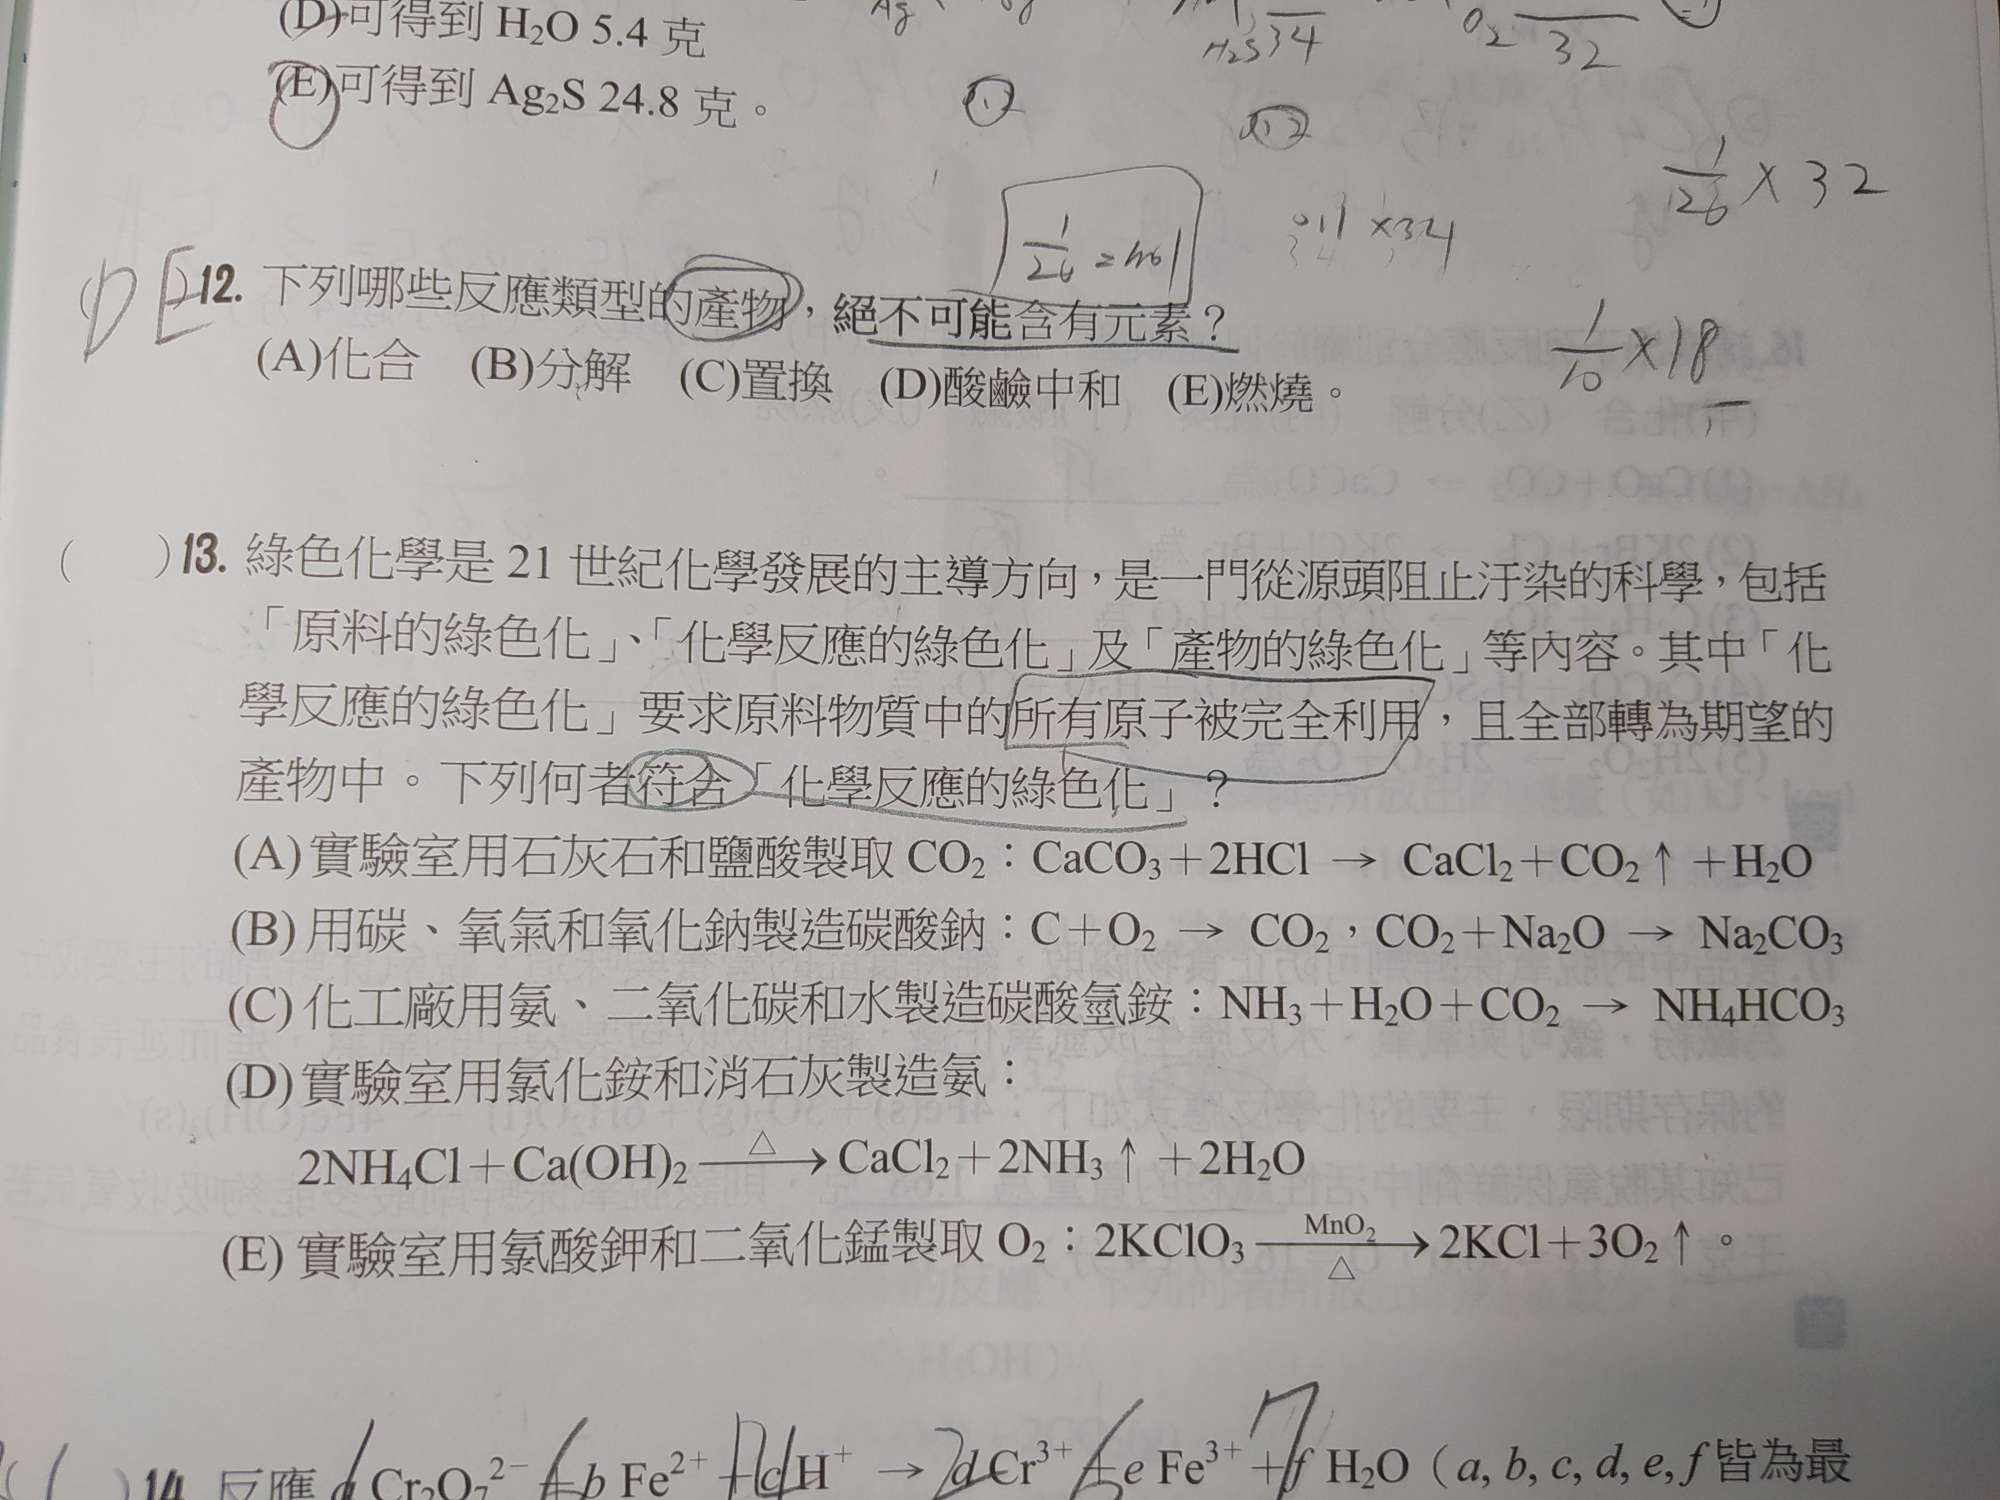 (D)可得到 H₂O 5.4 克
Ag
H₂S 34
O₂ 32
(E)可得到 Ag₂S 24.8 克。
1/26 × 32
1/26 = mol
0.1 × 34
DE 12. 下列哪些反應類型的產物，絕不可能含有元素？
1/10 × 18
(A)化合 (B)分解 (C)置換 (D)酸鹼中和 (E)燃燒。
( )13. 綠色化學是 21 世紀化學發展的主導方向，是一門從源頭阻止汙染的科學，包括
「原料的綠色化」、「化學反應的綠色化」及「產物的綠色化」等內容。其中「化
學反應的綠色化」要求原料物質中的所有原子被完全利用，且全部轉為期望的
產物中。下列何者符合「化學反應的綠色化」？
(A)實驗室用石灰石和鹽酸製取 CO₂：CaCO₃＋2HCl → CaCl₂＋CO₂↑＋H₂O
(B)用碳、氧氣和氧化鈉製造碳酸鈉：C＋O₂ → CO₂，CO₂＋Na₂O → Na₂CO₃
(C)化工廠用氨、二氧化碳和水製造碳酸氫銨：NH₃＋H₂O＋CO₂ → NH₄HCO₃
(D)實驗室用氯化銨和消石灰製造氨：
2NH₄Cl＋Ca(OH)₂ —△→ CaCl₂＋2NH₃↑＋2H₂O
(E)實驗室用氯酸鉀和二氧化錳製取 O₂：2KClO₃ —MnO₂/△→ 2KCl＋3O₂↑。
( )14. 反應 a Cr₂O₇²⁻＋b Fe²⁺＋c H⁺ → d Cr³⁺＋e Fe³⁺＋f H₂O（a, b, c, d, e, f 皆為最